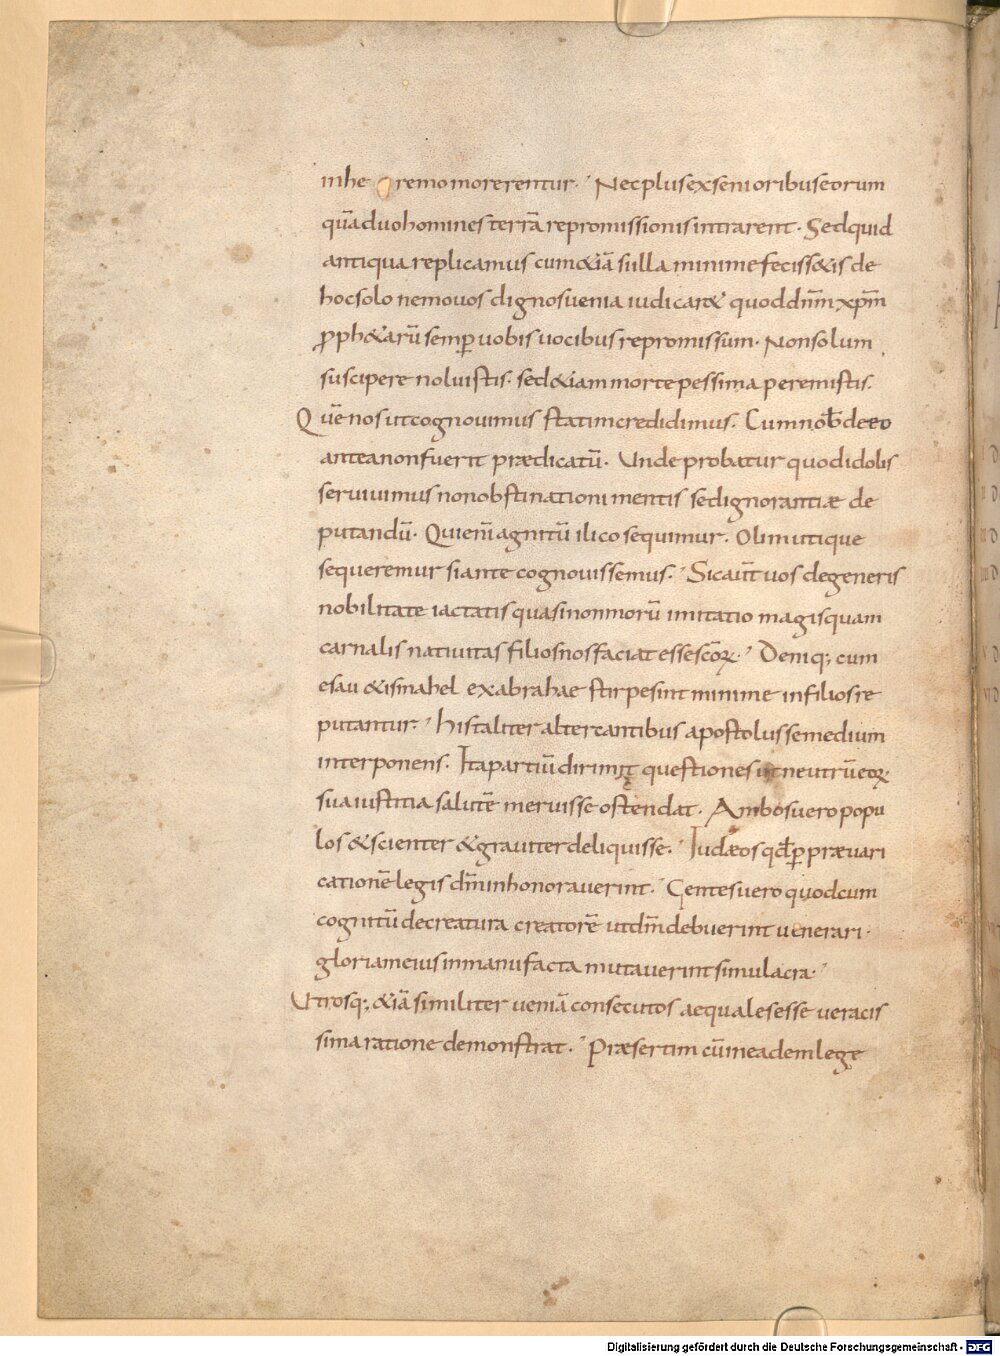 inhe remo morerentur. Nec plus ex senioribus eorum
quā duo homines terrā repromissionis intrarent. Sed quid
antiqua replicamus cum &iā si illa minime feciss&is de
hoc solo nemo uos dignos uenia iudicar& quod dn̄m xp̄m
ꝓph&arū semꝑ uobis uocibus repromissum. Non solum
suscipere noluistis. sed &iam morte pessima peremistis.
Quē nos ut cognouimus statim credidimus. Cum nob̄ de eo
antea non fuerit prædicatū. Unde probatur quod idolis
seruiuimus non obstinationi mentis sed ignorantiæ de
putandū. Qui eni͞ agnitū ilico sequimur. Olim utique
sequeremur si ante cognouissemus. Sic aut̄ uos de generis
nobilitate iactatis quasi non morū imitatio magis quam
carnalis natiuitas filios nos faciat esse sc̄orꝝ. Deniq; cum
esau &ismahel ex abrahae stirpe sint minime in filios re
putantur. His taliter altercantibus apostolus se medium
interponens. Ita partiū dirimit questiones ut neutrū eorꝝ
sua iustitia salutē meruisse ostendat. Ambos uero popu
los &scienter &grauiter deliquisse. Iudæos qd̄ ꝑ præuari
cationē legis dm̄ inhonorauerint. Gentes uero quod cum
cognitū de creatura creatorē ut dm̄ debuerint uenerari.
gloriam eius in manufacta mutauerint simulacra.
Utrosq; &iā similiter ueniā consecutos aequales esse ueracis
sima ratione demonstrat. Præsertim cū in eadem lege
Digitalisierung gefördert durch die Deutsche Forschungsgemeinschaft - DFG